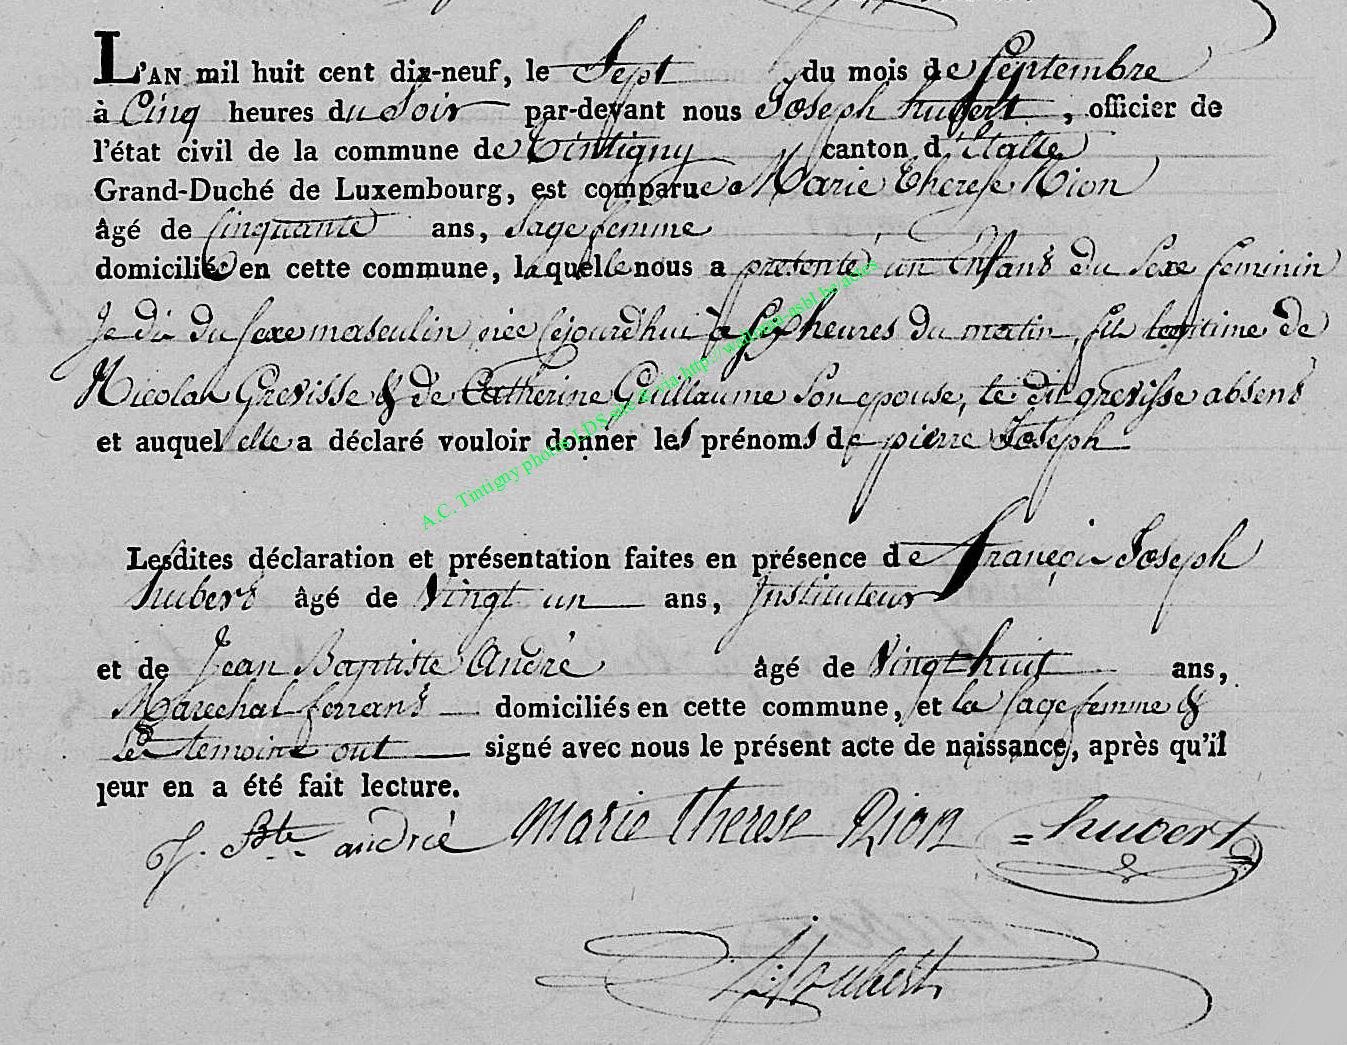 L'AN mil huit cent dix-neuf, le Sept du mois de Septembre
à Cinq heures du Soir par-devant nous Joseph hubert, officier de
l'état civil de la commune de Tintigny canton d'Etalle
Grand-Duché de Luxembourg, est comparue Marie Therese Rion
âgé de Cinquante ans, Sage femme
domiciliée en cette commune, laquelle nous a presenté un Enfant du Sexe feminin
Je dis du sexe masculin née cejourd'hui à heures du matin, fils legitime de
Nicolas Grevisse & de Catherine Guillaume Son epouse, le dit grevisse absent
et auquel elle a déclaré vouloir donner les prénoms de pierre Joseph
A.C. Tintigny photos LDS via http://wallonia-asbl.be/actes
Lesdites déclaration et présentation faites en présence de françois Joseph
hubert âgé de Vingt un ans, Instituteur
et de Jean Baptiste André âgé de Vingt huit ans,
Marechal ferrant domiciliés en cette commune, et la sage femme &
les temoins ont signé avec nous le présent acte de naissance, après qu'il
leur en a été fait lecture.
J. Bte. andrié Marie therese Rion = hubert
J: J: houbert